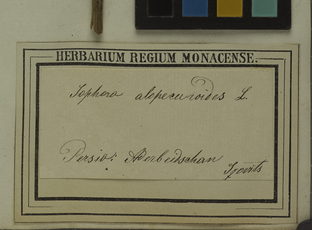 HERBARIUM REGIUM MONACENSE.
Sophora alopecuroides L.
Persia: Aderbeidschan
Szovits